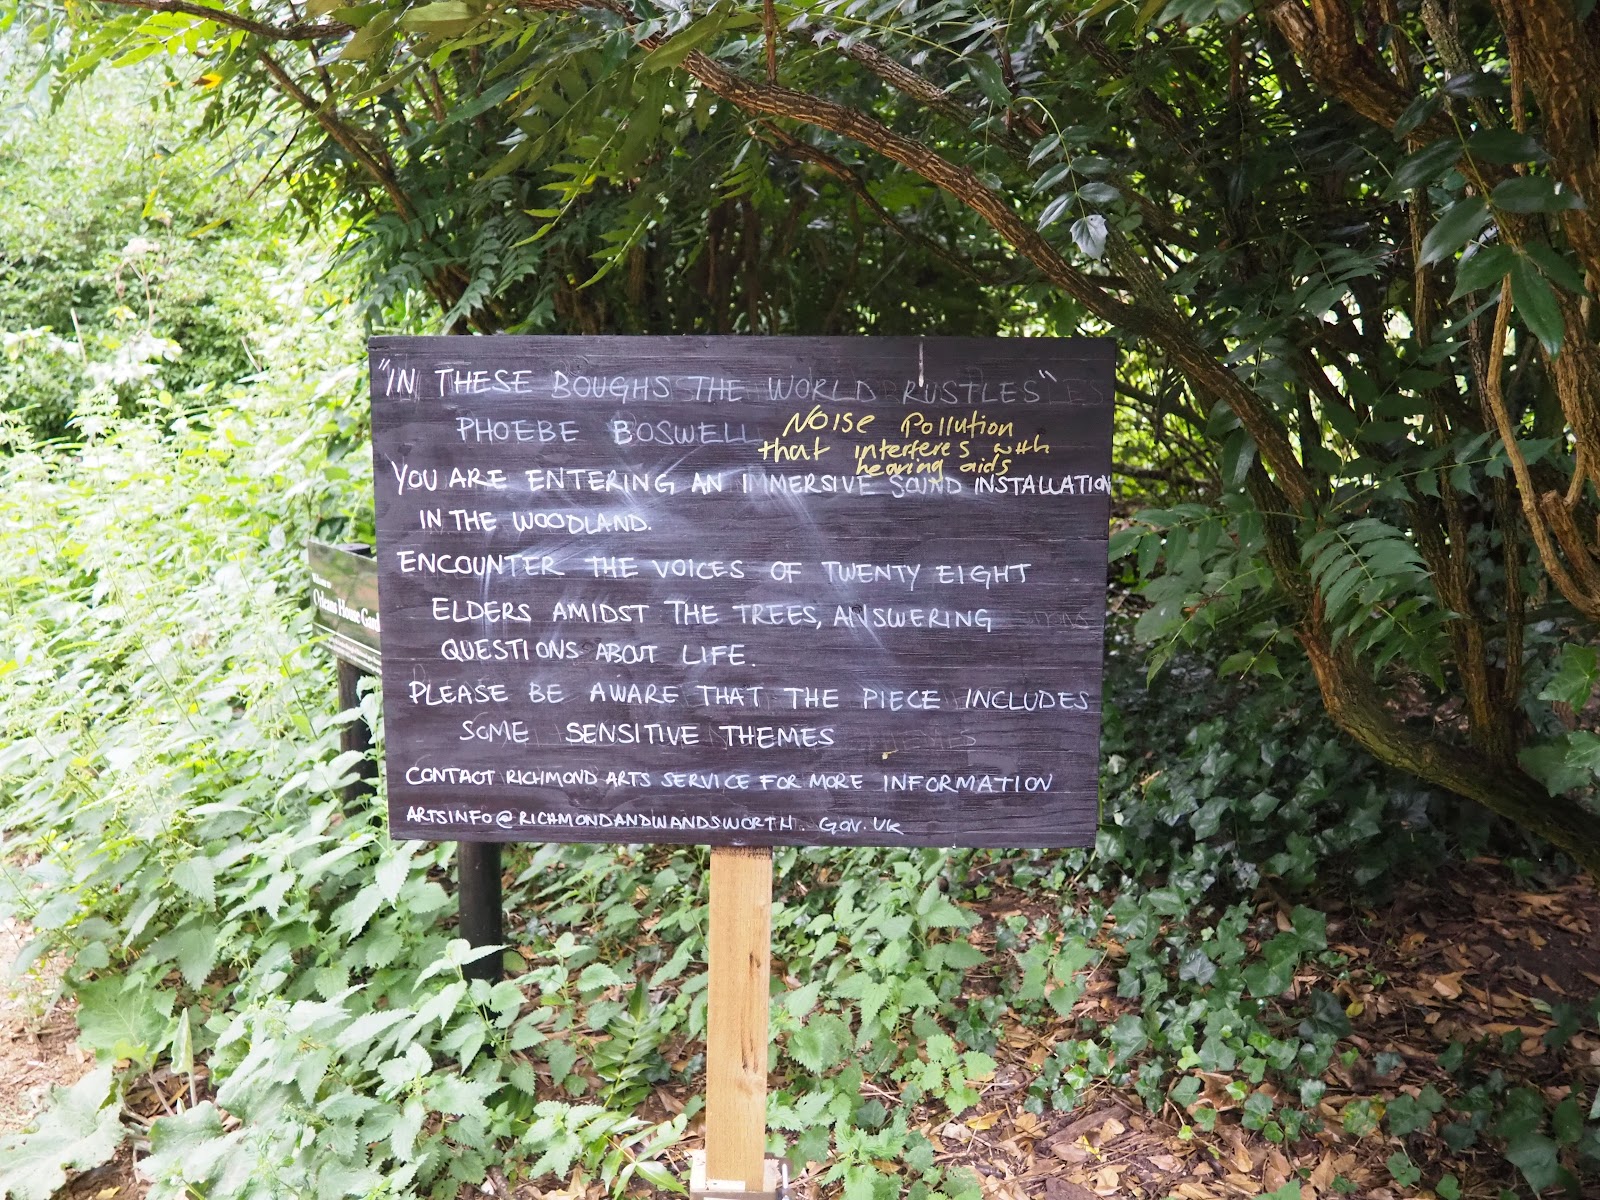 "IN THESE BOUGHS THE WORLD RUSTLES"
PHOEBE BOSWELL
NOISE Pollution
that interferes with
hearing aids
YOU ARE ENTERING AN IMMERSIVE SOUND INSTALLATION
IN THE WOODLAND.
ENCOUNTER THE VOICES OF TWENTY EIGHT
ELDERS AMIDST THE TREES, ANSWERING
QUESTIONS ABOUT LIFE.
PLEASE BE AWARE THAT THE PIECE INCLUDES
SOME SENSITIVE THEMES
CONTACT RICHMOND ARTS SERVICE FOR MORE INFORMATION
ARTSINFO@RICHMONDANDWANDSWORTH.GOV.UK
Orleans House Gard